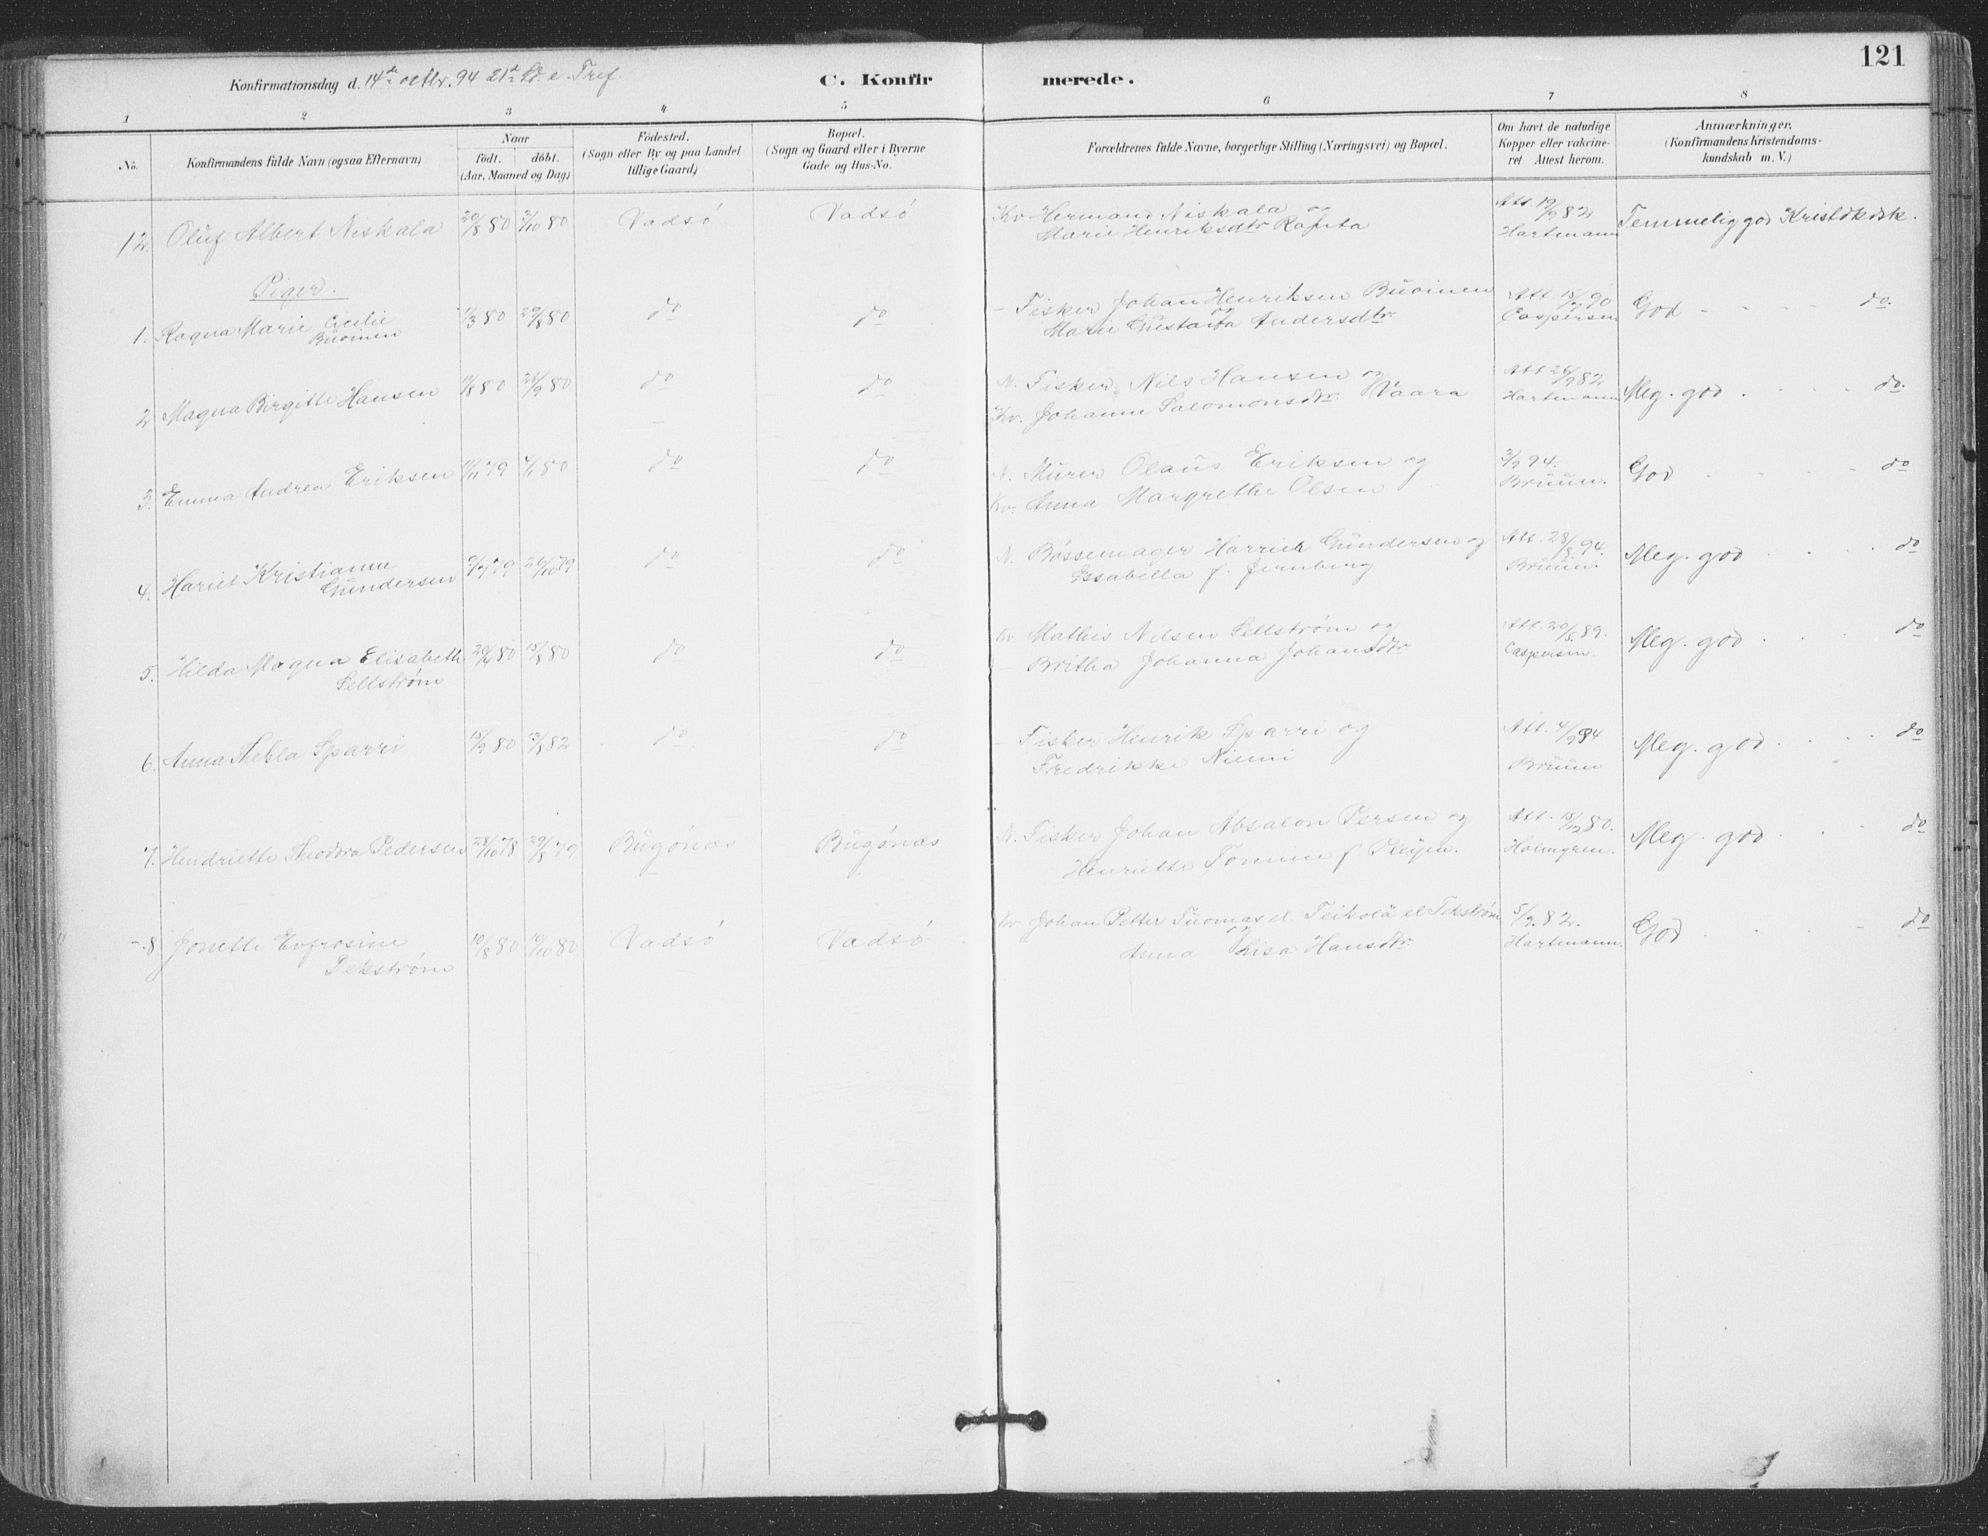 121
Konfirmationsdag d. 14de octbr. 94 21de Sd. e. Tref.
C. Konfir merede.
1 2 3 4 5 6 7 8
No. Konfirmandens fulde Navn (ogsaa Efternavn) Naar født. døbt. (Aar, Maaned og Dag) Fødested. (Sogn eller By og paa Landet tillige Gaard) Bopæl. (Sogn og Gaard eller i Byerne Gade og Hus-No. Forældrenes fulde Navne, borgerlige Stilling (Næringsvei) og Bopæl. Om havt de naturlige Kopper eller vakcineret. Attest herom. Anmærkninger. (Konfirmandens Kristendomskundskab m. V.)
12. Oluf Albert Niskala 20/8 80 3/10 80 Vadsö Vadsö Kv Hermand Niskala og Att. 19/9 82 Temmelig god Kristdkdsk.
Marie Henriksdtr Hartmann
Piger.
1. Ragna Marie Cecilie 1/3 80 29/8 80 do do - Fisker Johan Henriksen Buoinen og Att. 15/7 90 God - - - do.
Buoinen Marie Gustava Andersdtr Caspersen
2. Magna Birgitte Hansen 11/8 80 26/9 80 do do N. Fisker Nils Hansen og Att 26/9 82 Meg. god . . . do.
Kv. Johanne Salomonsdtr. Vaara Hartmann
3. Emma Andrea Eriksen 11/11 79 4/1 80 do do N. Murer Olaus Eriksen og 3/9 94. God - - - do
Kv. Anna Margrethe Olsen Bruun.
4. Hariet Kristianne 9/7 79 26/10 79 do do N. Bøssemager Harriet Gundersen og Att. 28/8 94. Meg. god . . . do
Gundersen Issabella f. Jernberg Bruun.
5. Hilda Magna Elisabeth 20/4 80 15/8 80 do do Kv. Mathis Nilsen Sellstrøm og Att. 20/5 89. Meg. god . . . do
Sellstrøm - Britha Johanna Johansdtr Caspersen.
6. Anna Thekla Sparri 15/2 80 13/8 82 do do - Fisker Henrik Sparri og Att. 4/9 94 Meg. god . . . do
Fredrikke Niemi Bruun
7. Hendriette Theodora Pedersen 28/10 78 29/8 79 Bugönæs Bugönæs N. Fisker Johan Absalon Persen og Att. 15/12 80. Meg. god . . . do
Henriette Tomine f. Holmgren.
8 Jonette Evfrosine 10/8 80 10/10 80 Vadsö Vadsö Kv. Johan Petter Tuomas el Teikolä el Tekstrøm 5/9 82. God . . - do
Tekstrøm og Anna Lisa Hansdtr Hartmann.